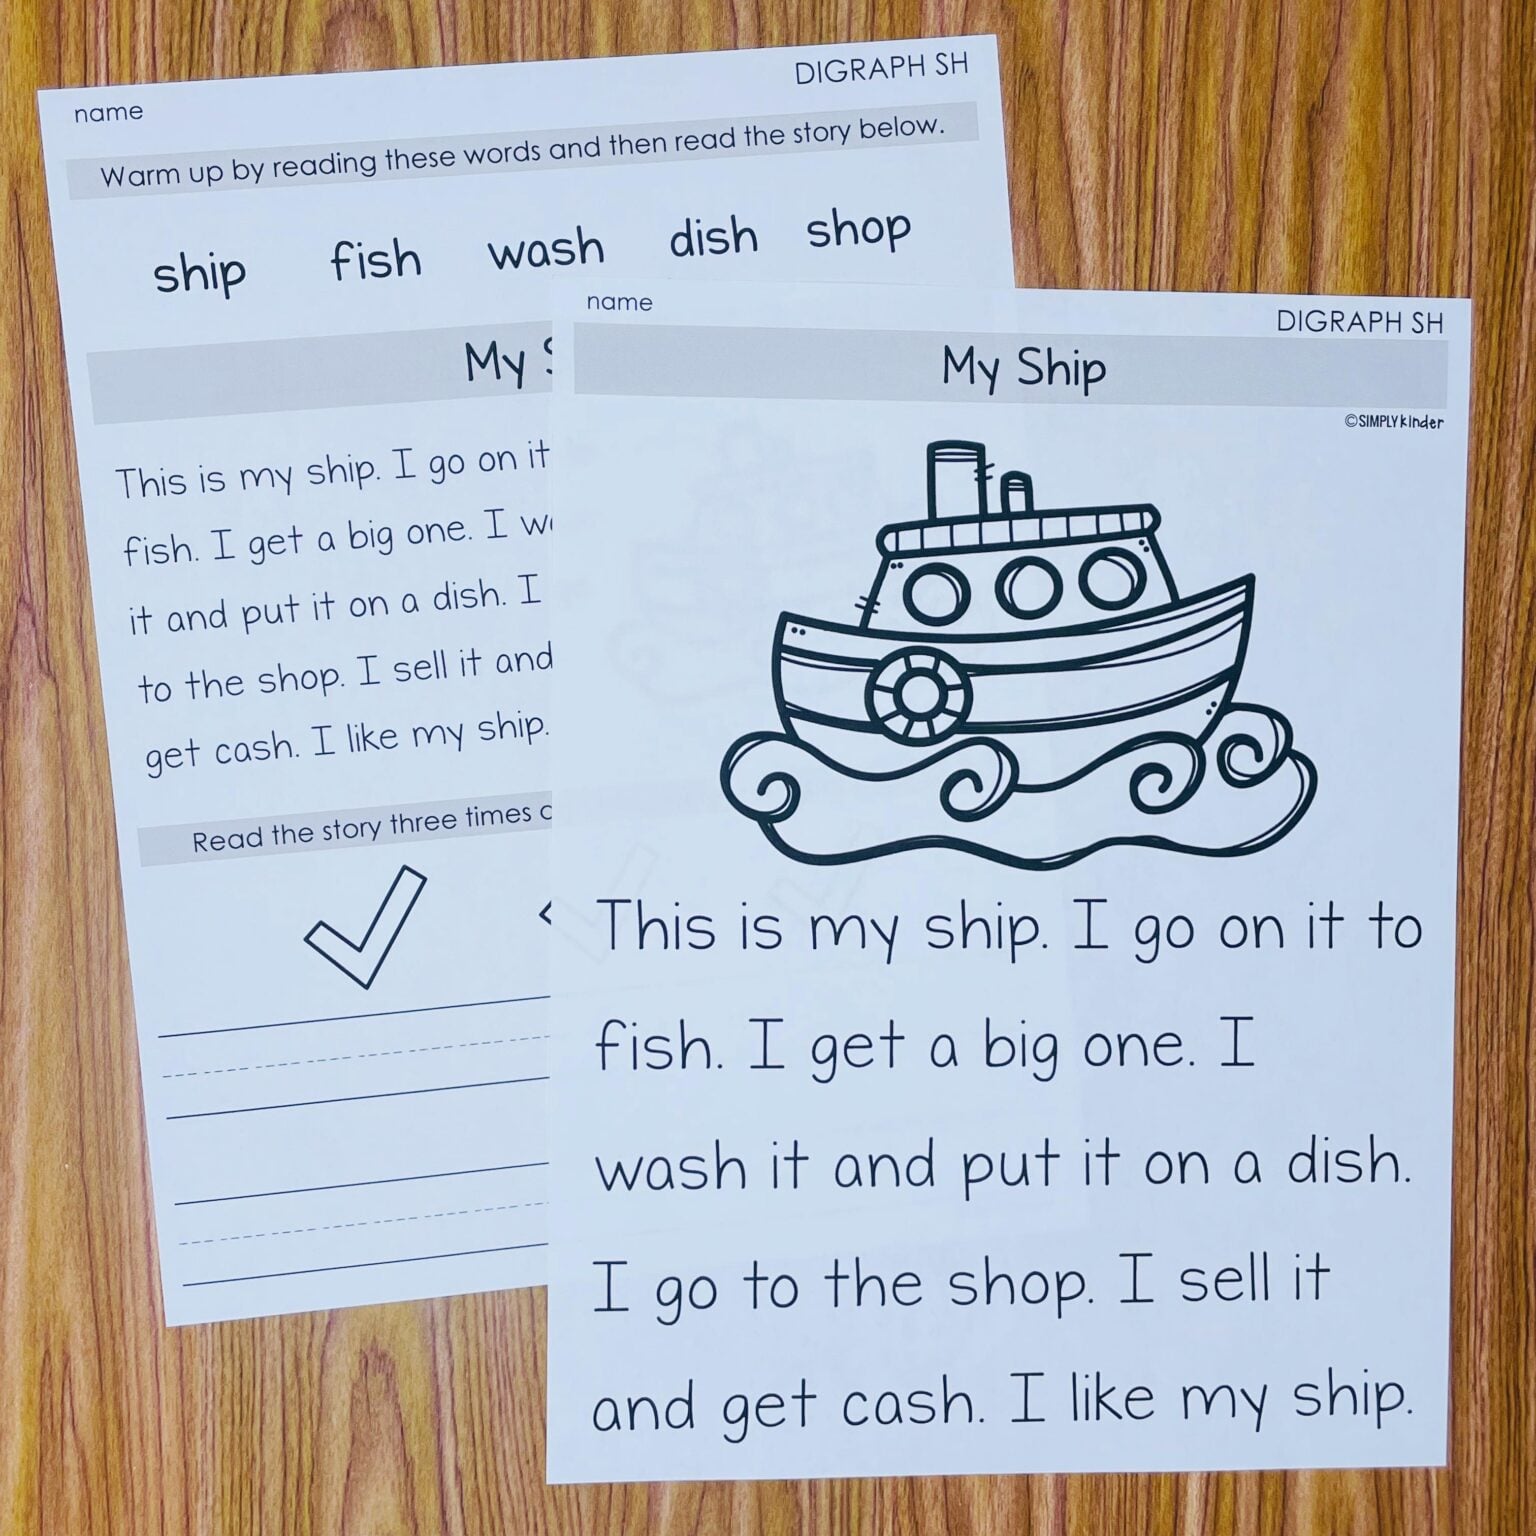 name
DIGRAPH SH
Warm up by reading these words and then read the story below.
ship fish wash dish shop
My
This is my ship. I go on it
fish. I get a big one. I
it and put it on a dish. I
to the shop. I sell it and
get cash. I like my ship.
Read the story three times
name
DIGRAPH SH
My Ship
©SIMPLYkinder
This is my ship. I go on it to
fish. I get a big one. I
wash it and put it on a dish.
I go to the shop. I sell it
and get cash. I like my ship.